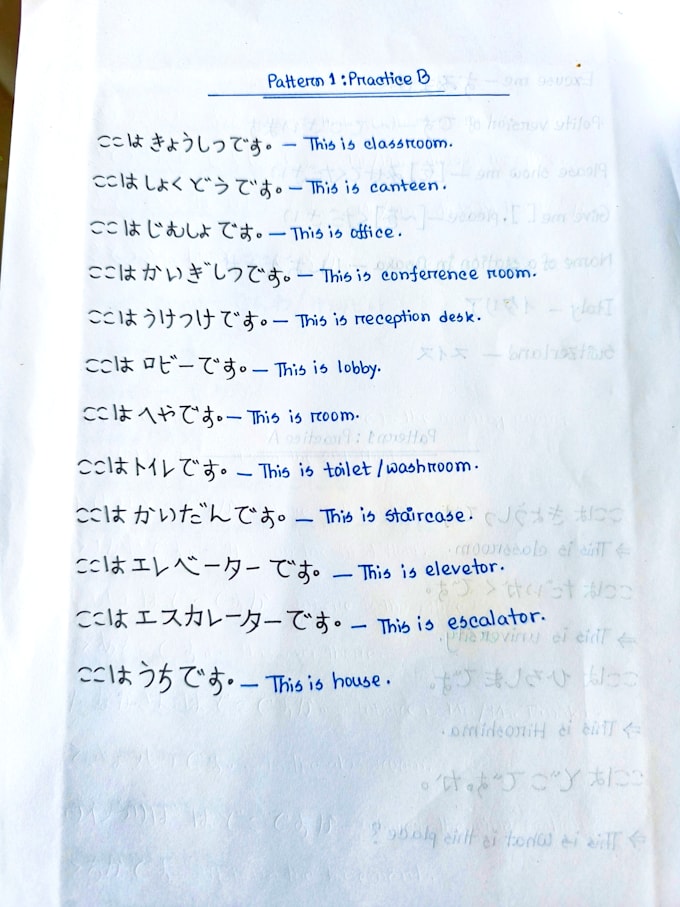 Pattern 1 : Practice B
ここは きょうしつです。 — This is classroom.
ここは しょくどうです。 — This is canteen.
ここは じむしょです。 — This is office.
ここは かいぎしつです。 — This is conference room.
ここは うけつけです。 — This is reception desk.
ここは ロビーです。 — This is lobby.
ここは へやです。 — This is room.
ここは トイレです。 — This is toilet/washroom.
ここは かいだんです。 — This is staircase.
ここは エレベーターです。 — This is elevetor.
ここは エスカレーターです。 — This is escalator.
ここは うちです。 — This is house.